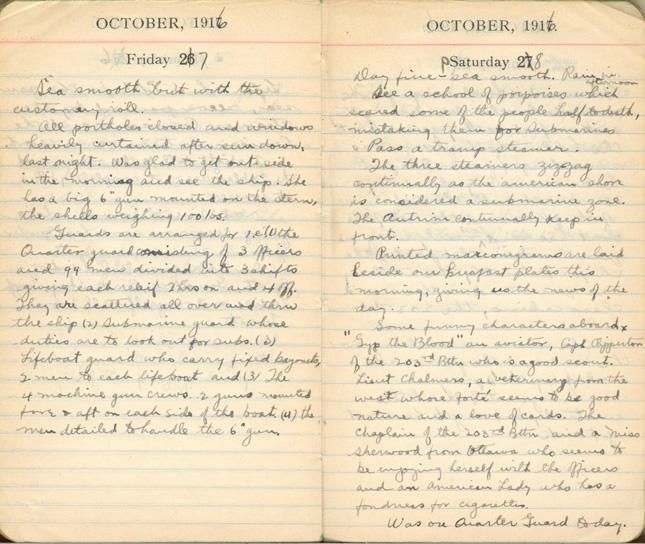 OCTOBER, 1916
Friday 27
Sea smooth but with the
customary roll.
All portholes closed and windows
heavily curtained after sun down,
last night. Was glad to get out side
in the morning and see the ship. She
has a big 6" gun mounted on the stern,
the shells weighing 100 lbs.
Guards are arranged for i.e. (1) the
Quarter guard consisting of 3 officers
and 99 men divided into 3 shifts
giving each relief 2 hrs on and 4 off.
They are scattered all over and thru
the ship (2) Submarine guard whose
duties are to look out for subs. (3)
Lifeboat guard who carry fixed bayonets,
2 men to each lifeboat and (3) The
4 machine gun crews. 2 guns mounted
fore & aft on each side of the boat (4) the
men detailed to handle the 6" gun.
OCTOBER, 1916.
Saturday 28
Day fine - sea smooth. Rain in
afternoon
See a school of porpoises which
scared some of the people half to death,
mistaking them for Submarines
Pass a tramp steamer.
The three steamers zigzag
continually as the american shore
is considered a submarine zone.
The Antrim continually keep in
front.
Printed marconigrams are laid
beside our Breakfast plates this
morning, giving us the news of the
day.
Some funny characters aboard
"Gyp the Blood" an aviator, Capt
of the 203rd Bttn who is a good scout.
Lieut Chalmers, a veterinary from the
west whose forte seems to be good
nature and a love of cards. The
Chaplain of the 203rd Bttn and a Miss
Sherwood from Ottawa who seems to
be enjoying herself with the officers
and an American Lady who has a
fondness for cigarettes.
Was on Quarter Guard today.